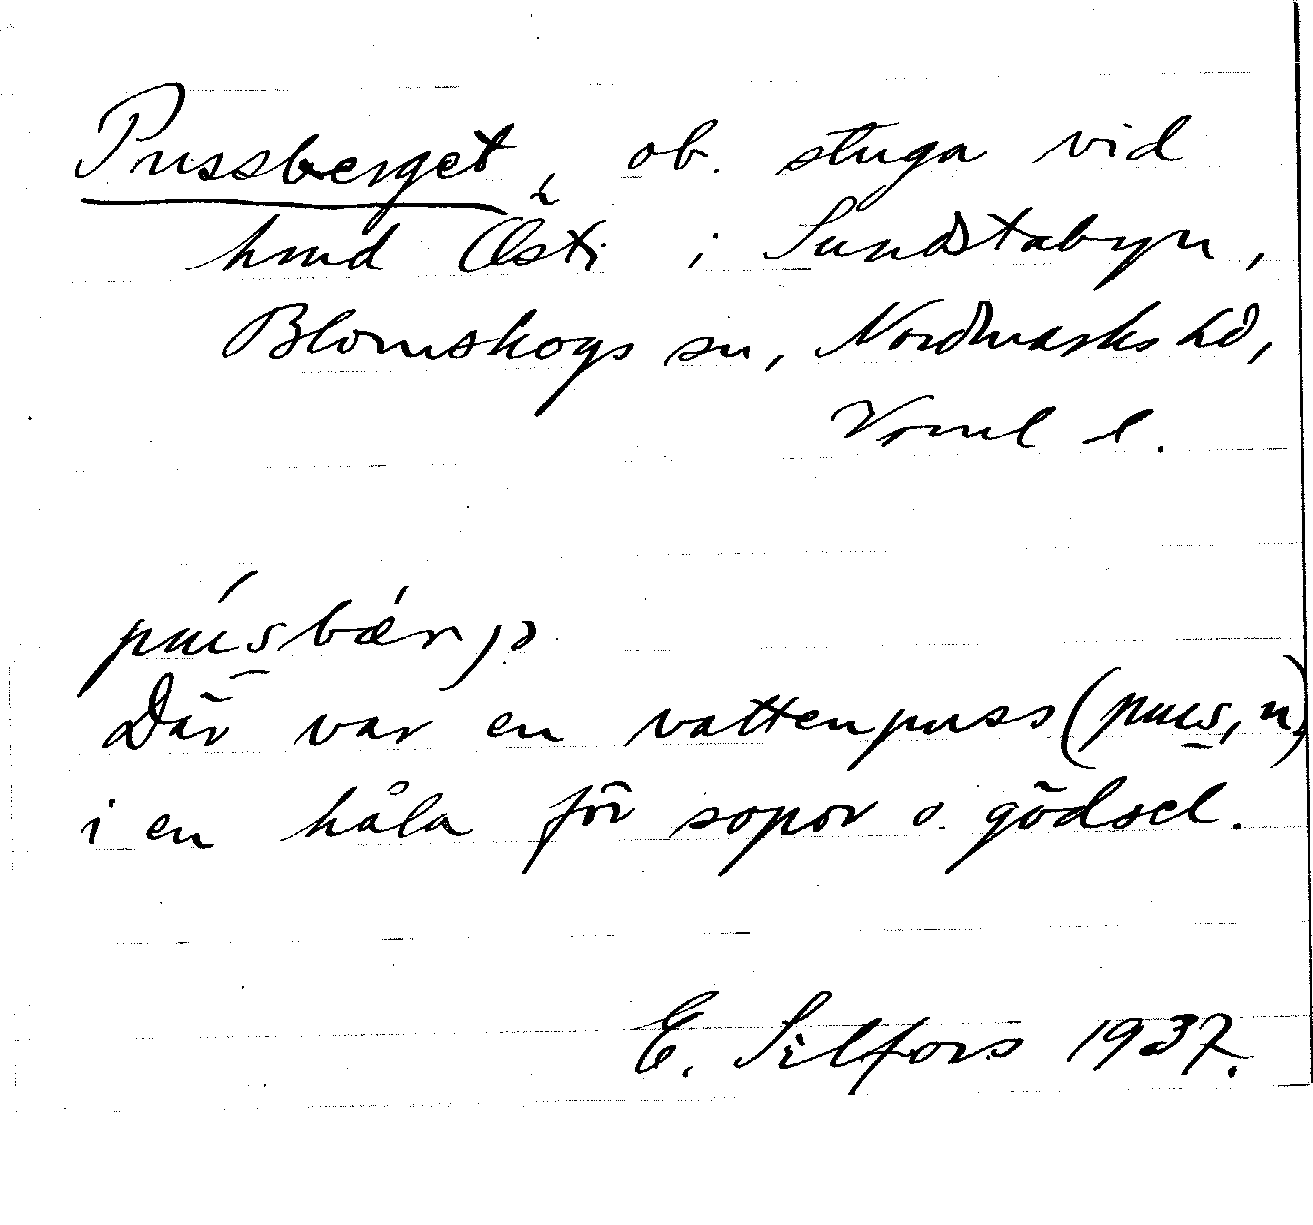 Pussberget, ob. stuga vid
hmd Östi i Sundstabyn,
Blomskogs sn, Nordmarks hd,
Vrml l.
púsbær
Där var en vattenpuss (pus, n)
i en håla för sopor o. gödsel.
E. Silfors 1937.